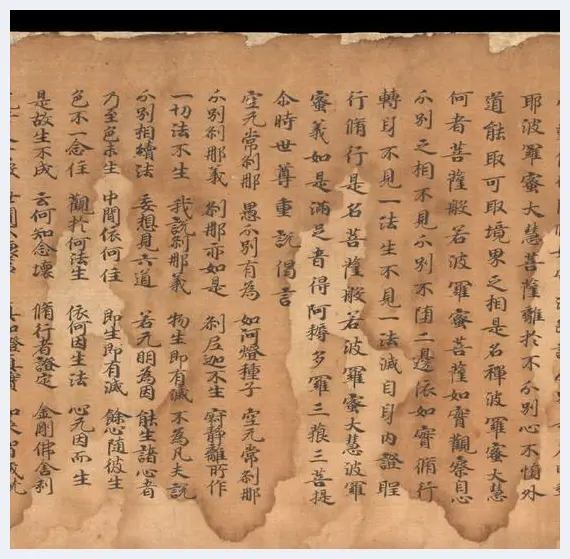 耶波羅蜜大慧菩薩離於不分別心不憤外
道能取可取境界之相是名禪波羅蜜大慧
何者菩薩般若波羅蜜菩薩如實觀察自心
分別之相不見分別不墮二邊依如實脩行
轉身不見一法生不見一法滅自身内證聖
行脩行是名菩薩般若波羅蜜大慧波羅
蜜義如是滿足者得阿耨多羅三藐三菩提
尒時世尊重説偈言
空无常刹那 愚分別有為 如河燈種子 空无常刹那
分別刹那義 刹那亦如是 刹尼迦不生 寂靜離所作
一切法不生 我説刹那義 物生即有滅 不為凡夫説
分別相續法 妄想見六道 若无明為因 能生諸心者
乃至色未生 中間依何住 即生即有滅 餘心隨彼生
色不一念住 觀於何法生 依何因生法 心无因而生
是故生不成 云何知念壞 脩行者證定 金剛佛舍利